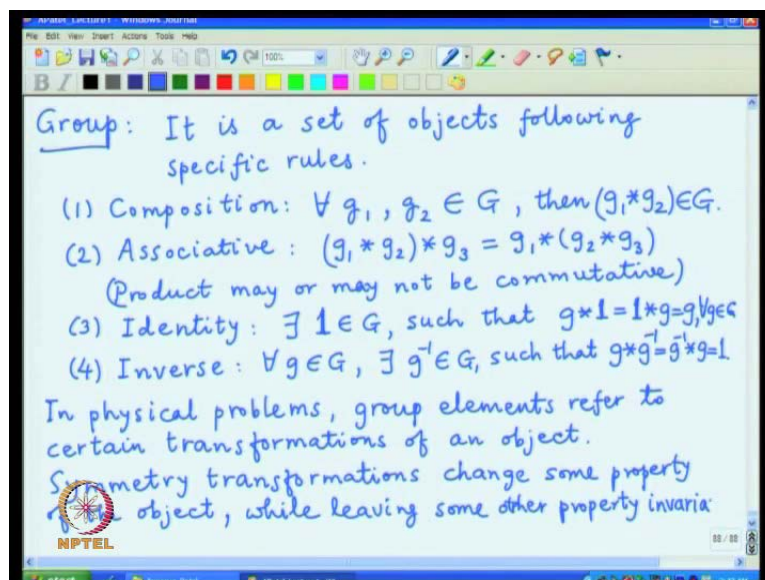 XPatel_Lecture1 - Windows Journal
File Edit View Insert Actions Tools Help
100%
B I
Group: It is a set of objects following
specific rules.
(1) Composition: ∀ g₁, g₂ ∈ G, then (g₁*g₂)∈G.
(2) Associative: (g₁*g₂)*g₃ = g₁*(g₂*g₃)
(Product may or may not be commutative)
(3) Identity: ∃ 1∈G, such that g*1=1*g=g,∀g∈G
(4) Inverse: ∀g∈G, ∃ g⁻¹∈G, such that g*g⁻¹=g⁻¹*g=1
In physical problems, group elements refer to
certain transformations of an object.
Symmetry transformations change some property
of the object, while leaving some other property invaria
NPTEL
88/88
start